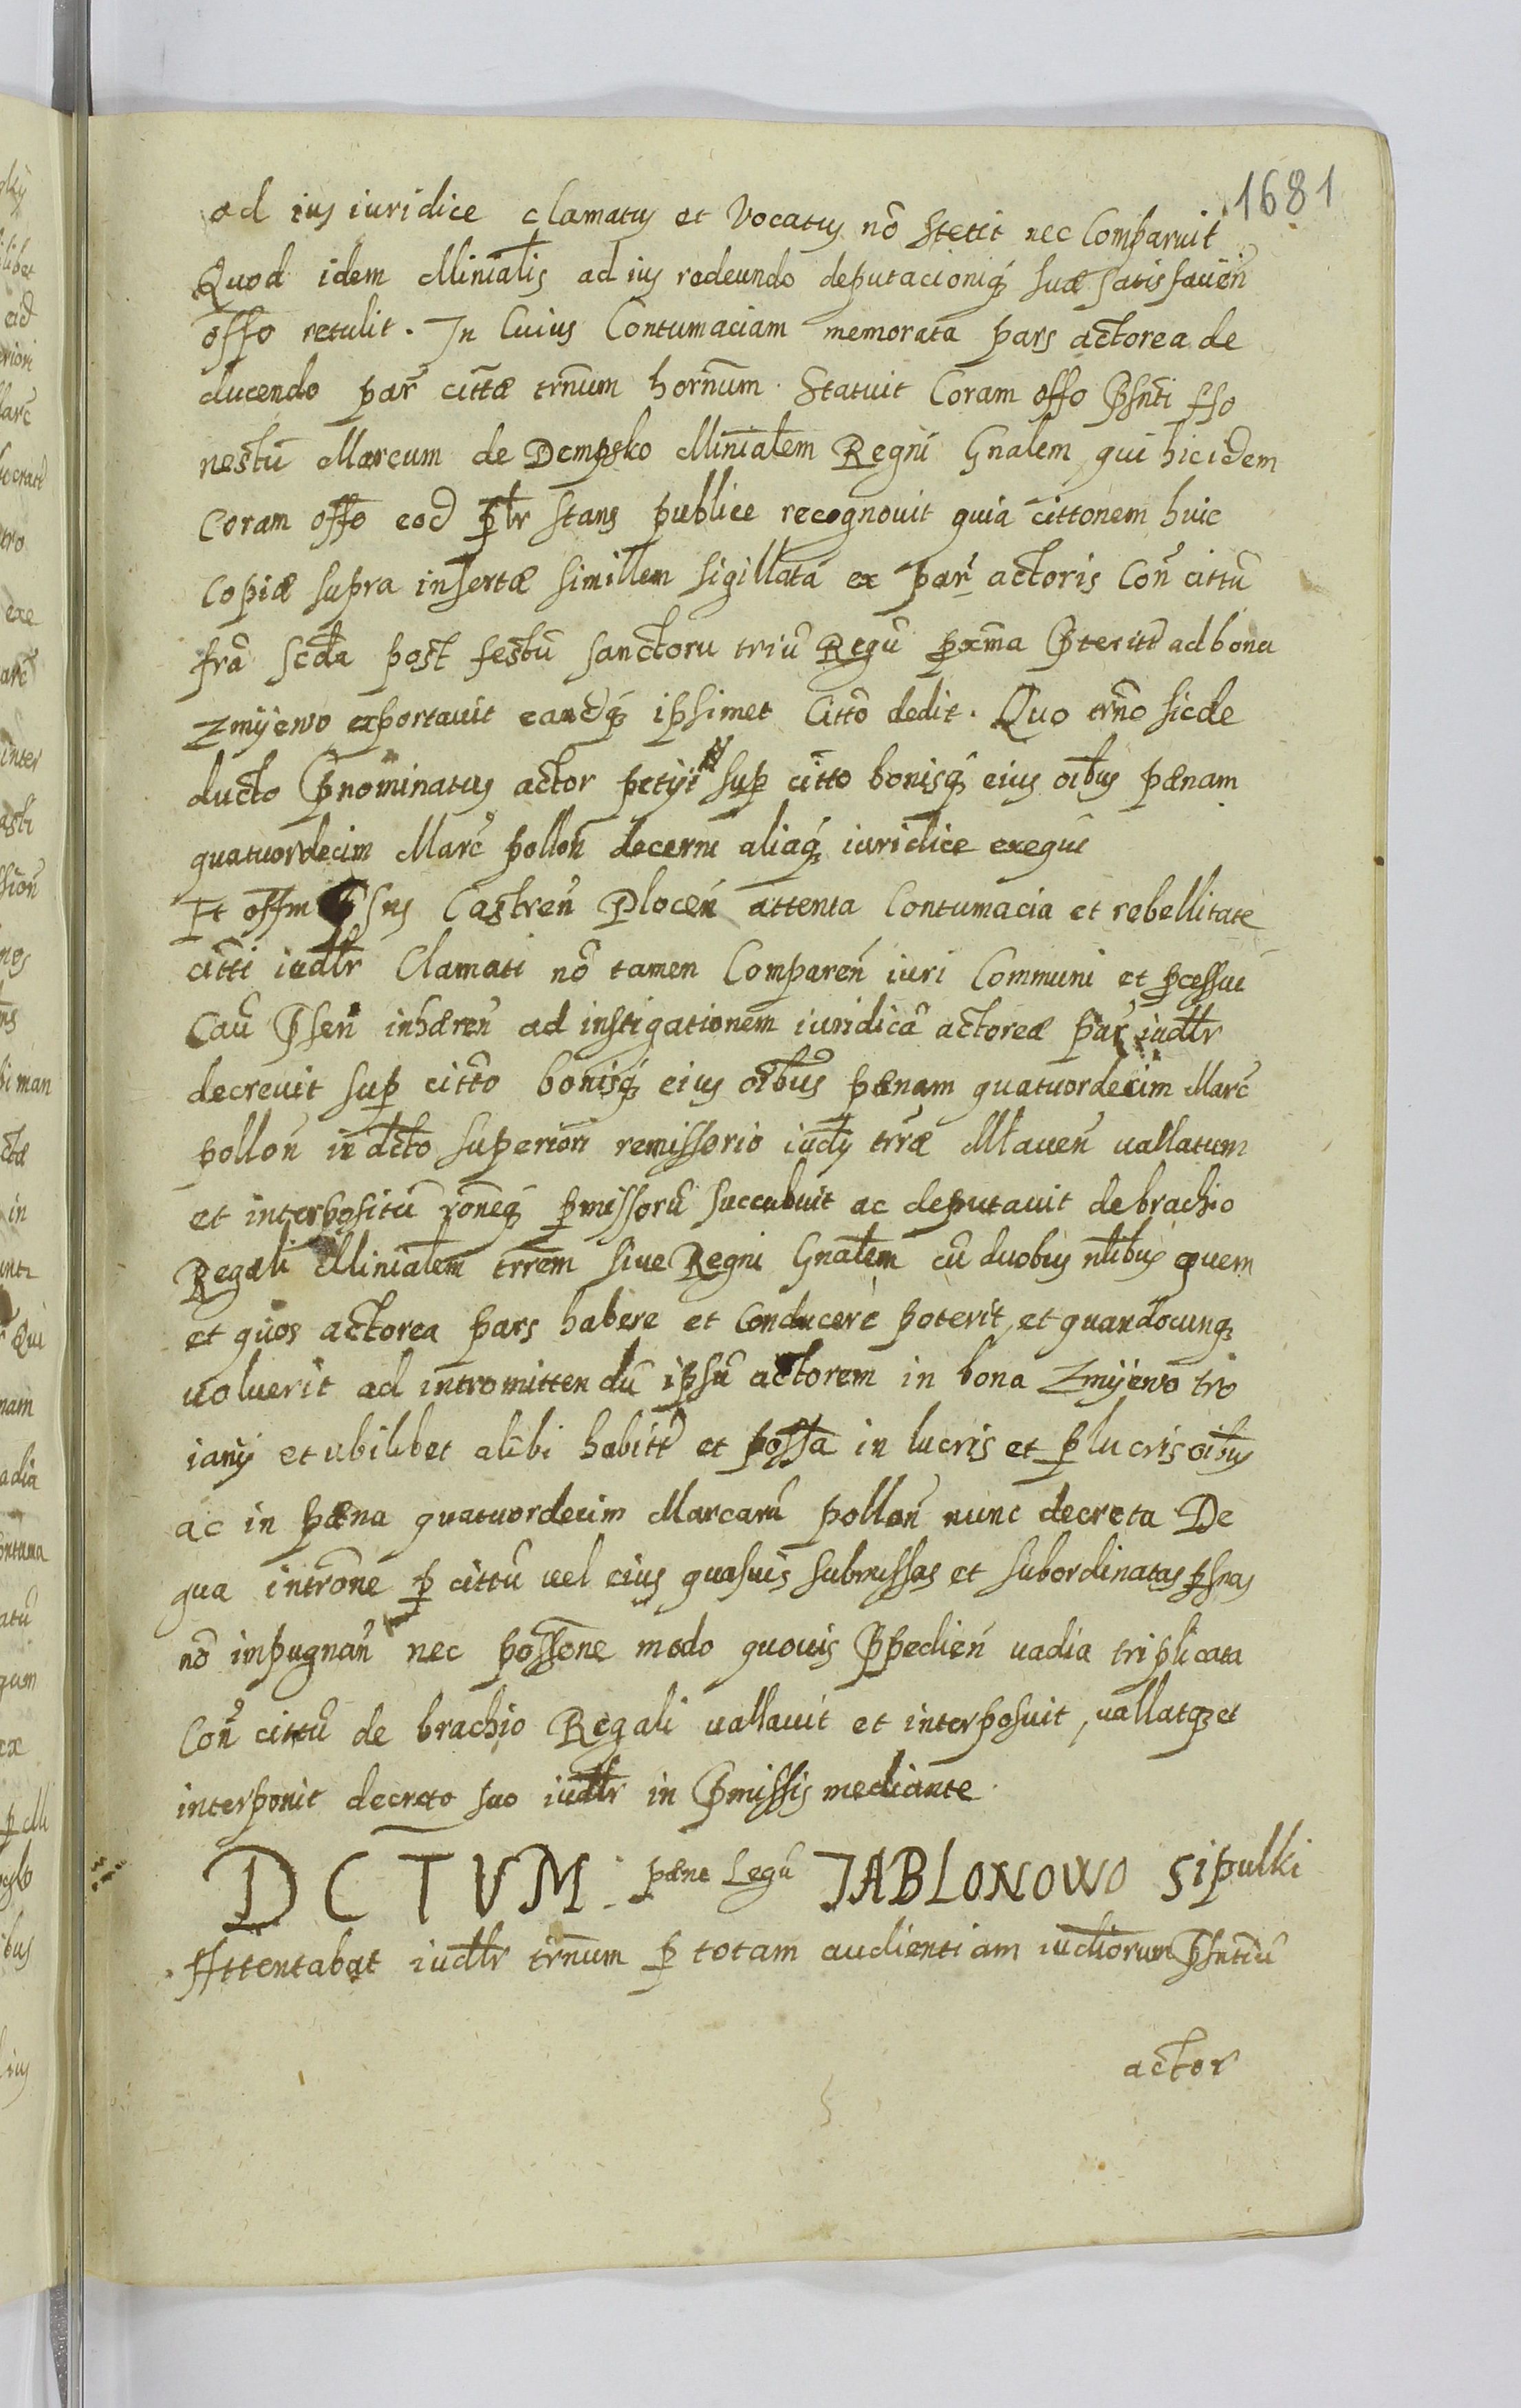 1681
ad ius iuridice clamatus et vocatus nō stetit nec Comparuit
Quod idem Ministlis ad ius redeundo deputacioniq; suæ satisfacien̄
offo retulit. In Cuius Contumaciam memorata pars actorea de
ducendo par̄ cittæ trnum hornum. Statuit Coram offo Psnti Ho
nestū Marcum de Dempsko Minialem Regni Gnalem qui hic idem
Coram offo eod plr stans publice recognouit quia cittonem huic
Copiæ supra insertæ similem sigillatā ex par̄ actoris Con̄ cittū
fr̄a scda post festū sanctoru triū Regū pxma Pterit̄ ad bona
Zmijewo exportauit eandq; ipsimet Citto dedit. Quo trno sic de
ducto Pnominatus actor petijt sup citto bonisq; eius oibus pænam
quatuordecim Marc̄ pollon̄ decerni aliaq; iuridice exequi
Et offm Psns Castren̄ Plocen̄ attenta Contumacia et rebellitate
citti iudlr Clamati nō tamen Comparen̄ iuri Communi et pcessui
Cau Psen̄ inhæren̄ ad instigationem iuridicā actoreæ par̄ iudlr
decreuit sup citto bonisq; eius oibus pænam quatuordecim Marc̄
pollon̄ in dcto superiori remissorio iudy trræ Mlauen̄ vallatum
et interpositū roneq; pmissorū succubuit ac deputauit de brachio
Regali Minialem trrem siue Regni Gnalem cū duobus nlibus quem
et quos actorea pars habere et Conducere poterit, et quandocunq;
uoluerit ad intromittendū ipsū actorem in bona Zmijewo tro
iany et ubilibet alibi habit̄ et possa in lucris et plucris oibus
ac in pæna quatuordecim Marcarū pollon̄ nunc decreta De
qua introne p cittū uel eius quasuis submissas et subordinatas psnas
nō impugnan̄ nec possone modo quouis Ppedien̄ vadia triplicata
Con̄ cittū de brachio Regali vallauit et interposuit, vallatq; et
interponit decreto suo iudlr in Pmissis mediante.
DCTVM: pæne Legū JABLONOWO Sipulki
Attentabat iudlr trnum p totam audientiam iudiorum Psntiū
actor